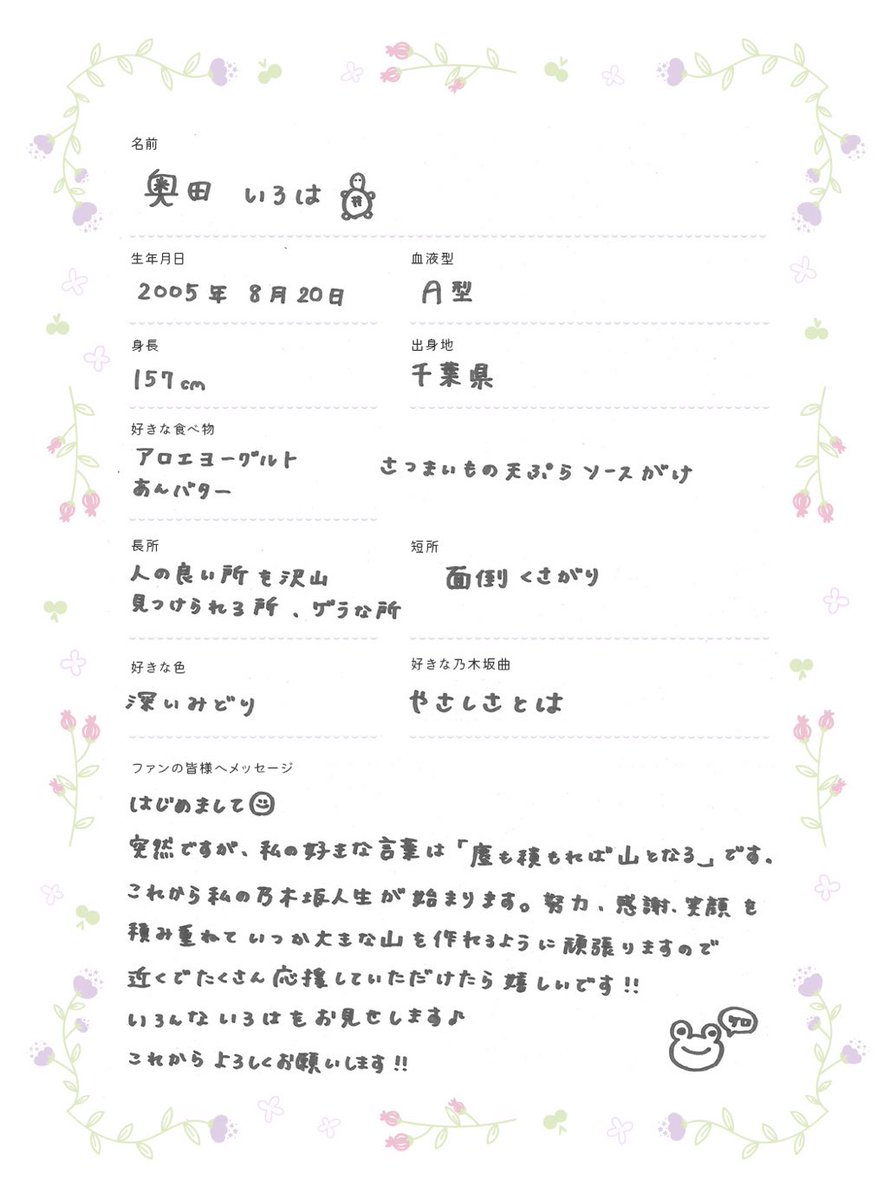 名前
奥田 いろは
生年月日
2005年 8月20日
血液型
A型
身長
157cm
出身地
千葉県
好きな食べ物
アロエヨーグルト
あんバター
さつまいもの天ぷらソースがけ
長所
人の良い所を沢山
見つけられる所、ゲラな所
短所
面倒くさがり
好きな色
深いみどり
好きな乃木坂曲
やさしさとは
ファンの皆様へメッセージ
はじめまして
突然ですが、私の好きな言葉は「塵も積もれば山となる」です。
これから私の乃木坂人生が始まります。努力、感謝、笑顔を
積み重ねていつか大きな山を作れるように頑張りますので
近くでたくさん応援していただけたら嬉しいです!!
いろんないろはをお見せします♪
これからよろしくお願いします!!
ケロ